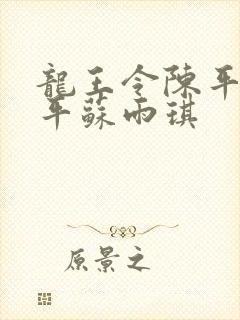 龍王令陳平
平蘇雨琪
原景之